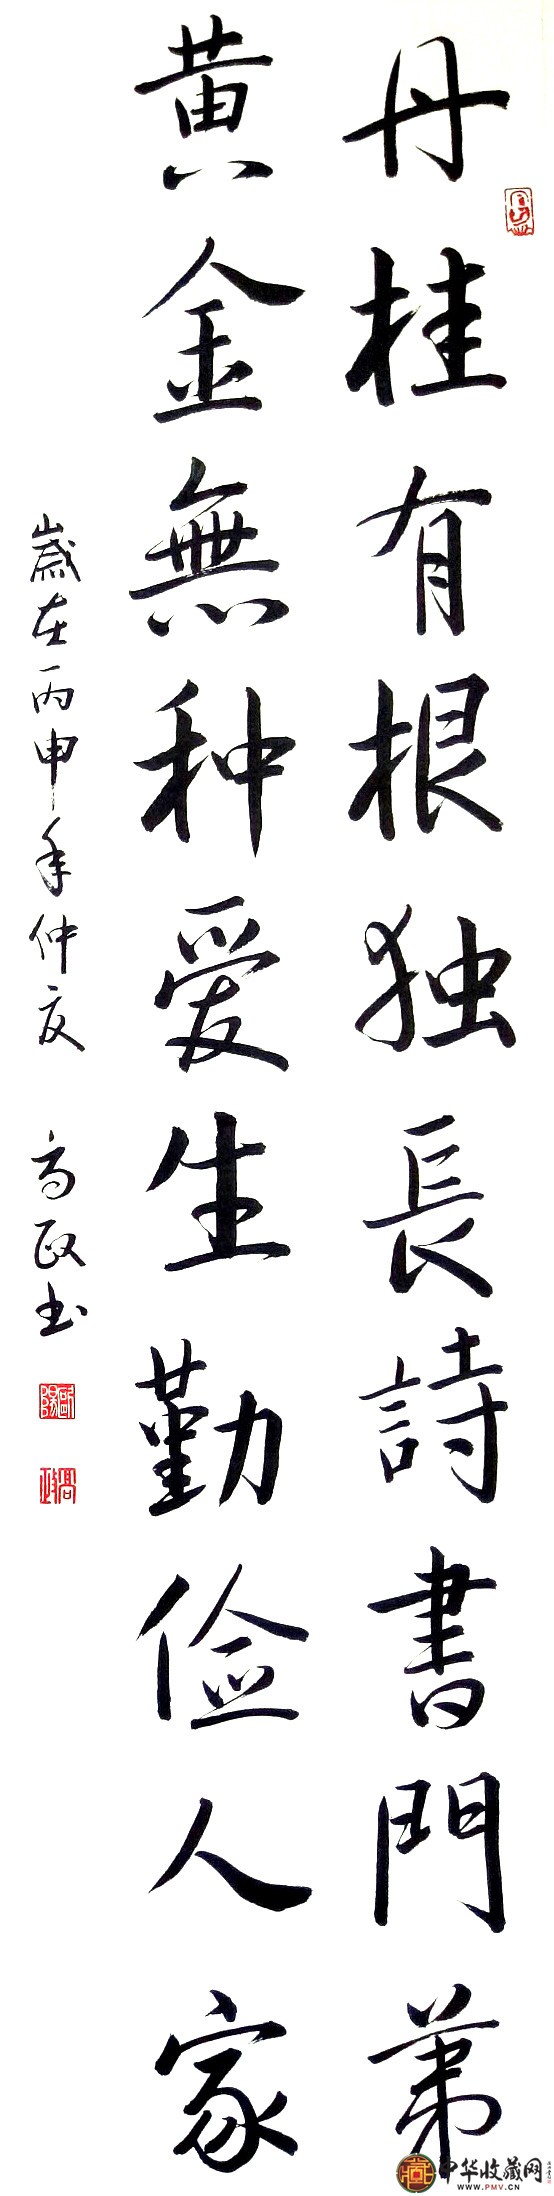 丹桂有根独長詩書門第
黄金無种爱生勤俭人家
歲在丙申年仲夏 高政书
歐陽
高政
中华收藏网
WWW.PMV.CN